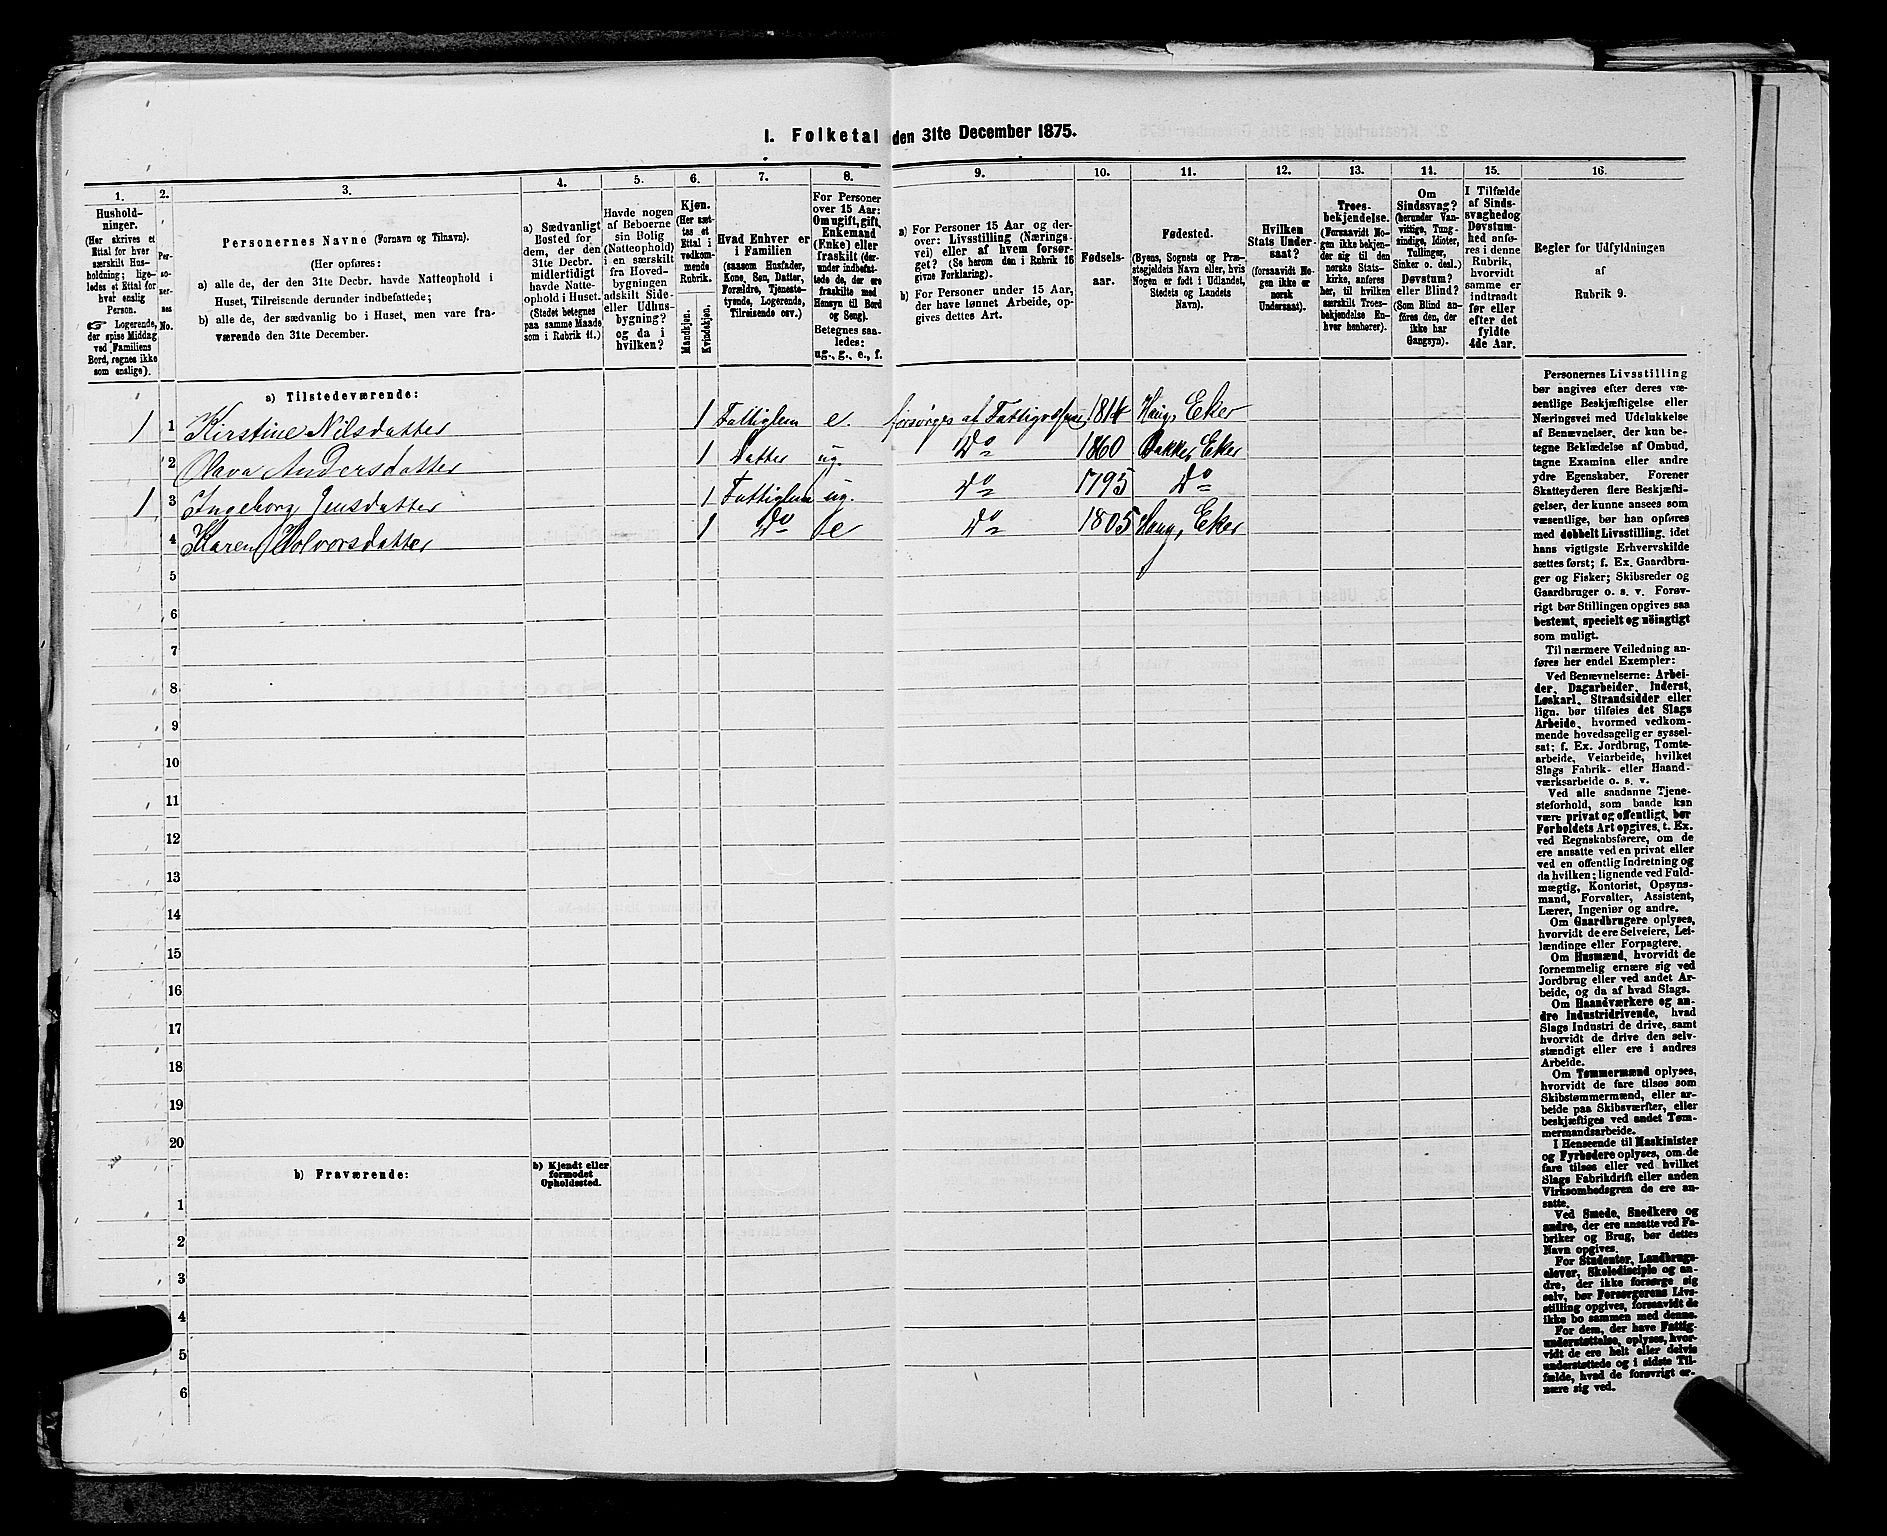 I. Folketal den 31te December 1875.
1. 2. 3. 4. 5. 6. 7. 8. 9. 10. 11. 12. 13. 14. 15. 16.
Hushold-
ninger.
(Her skrives et
Ettal for hver
særskilt Hus-
holdning; lige-
ledes et Ettal for
hver enslig
Person.
☞ Logerende,
der spise Middag
ved Familiens
Bord, regnes ikke
som enslige).
Per-
so-
ner-
nes
No.
Personernes Navne (Fornavn og Tilnavn).
(Her opføres:
a) alle de, der den 31te Decbr. havde Natteophold i
Huset, Tilreisende derunder indbefattede;
b) alle de, der sædvanlig bo i Huset, men vare fra-
værende den 31te December.
a) Sædvanligt
Bosted for
dem, der den
31te Decbr.
midlertidigt
havde Natte-
ophold i Huset.
(Stedet betegnes
paa samme Maade
som i Rubrik 11.)
Havde nogen
af Beboerne
sin Bolig
(Natteophold)
i en særskilt
fra Hoved-
bygningen
adskilt Side-
eller Udhus-
bygning?
og da i
hvilken?
Kjøn.
(Her sæt-
tes et
Ettal i
vedkom-
mende
Rubrik.
Mandkjøn.
Kvindekjøn.
Hvad Enhver er
i Familien
(saasom Husfader,
Kone, Søn, Datter,
Forældre, Tjeneste-
tyende, Logerende,
Tilreisende osv.)
For Personer
over 15 Aar:
Om ugift, gift,
Enkemand
(Enke) eller
fraskilt (der-
under indbefat-
tede de, der ere
fraskilte med
Hensyn til Bord
og Seng).
Betegnes saa-
ledes:
ug., g., e., f.
a) For Personer 15 Aar og der-
over: Livsstilling (Nærings-
vei) eller af hvem forsør-
get? (Se herom den i Rubrik 16
givne Forklaring).
b) For Personer under 15 Aar,
der have lønnet Arbeide, op-
gives dettes Art.
Fødsels-
aar.
Fødested.
(Byens, Sognets og Præ-
stegjeldets Navn eller, hvis
Nogen er født i Udlandet,
Stedets og Landets
Navn).
Hvilken
Stats Under-
saat?
(forsaavidt No-
gen ikke er
norsk
Undersaat).
Troes-
bekjendelse.
(Forsaavidt No-
gen ikke bekjen-
der sig til den
norske Stats-
kirke, anføres
her, til hvilken
særskilt Troes-
bekjendelse En-
hver henhører).
Om
Sindssvag?
(herunder Van-
vittige, Tung-
sindige, Idioter,
Tullinger,
Sinker o. desl.)
Døvstum?
eller Blind?
(Som Blind an-
føres den, der
ikke har
Gangsyn).
I Tilfælde
af Sinds-
svaghed og
Døvstum-
hed anfø-
res i denne
Rubrik,
hvorvidt
samme er
indtraadt
før eller
efter det
fyldte
4de Aar.
Regler for Udfyldningen
af
Rubrik 9.
a) Tilstedeværende:
1 1 Kirstine Nilsdatter 1 Fattiglem e. forsørges af 1814 Haug, Eker
2 Olava Andersdatter 1 Datter ug. Do 1860 Bakke, Eker
1 3 Ingeborg Jensdatter 1 Fattiglem ug. Do 1795 Do
4 Karen Holvorsdatter 1 Do e Do 1805 Haug, Eker
5
6
7
8
9
10
11
12
13
14
15
16
17
18
19
20
b) Fraværende:
b) Kjendt eller
formodet
Opholdssted.
1
2
3
4
5
6
Personernes Livsstilling
bør angives efter deres væ-
sentlige Beskjæftigelse eller
Næringsvei med Udelukkelse
af Benævnelser, der kun be-
tegne Beklædelse af Ombud,
tagne Examina eller andre
ydre Egenskaber. Forener
Skatteyderen flere Beskjæfti-
gelser, der kunne ansees som
væsentlige, bør han opføres
med dobbelt Livsstilling, idet
hans vigtigste Erhvervskilde
sættes først; f. Ex. Gaardbru-
ger og Fisker; Skibsreder og
Gaardbruger o. s. v. Forøv-
rigt bør Stillingen opgives saa
bestemt, specielt og nöiagtigt
som muligt.
Til nærmere Veiledning an-
føres her endel Exempler:
Ved Benævnelserne: Arbei-
der, Dagarbeider, Inderst,
Løskarl, Strandsidder eller
lign. bør tilføies det Slags
Arbeide, hvormed vedkom-
mende hovedsagelig er syssel-
sat; f. Ex. Jordbrug, Tomte-
arbeide, Veiarbeide, hvilket
Slags Fabrik- eller Haand-
værksarbeide o. s. v.
Ved alle saadanne Tjene-
steforhold, som baade kan
være privat og offentligt, bør
Forholdets Art opgives, t. Ex.
ved Regnskabsførere, om de
ere ansatte ved en privat eller
ved en offentlig Indretning og
da hvilken; lignende ved Fuld-
mægtig, Kontorist, Opsyns-
mand, Forvalter, Assistent,
Lærer, Ingeniør og andre.
Om Gaardbrugere oplyses,
hvorvidt de ere Selveiere, Lei-
lændinge eller Forpagtere.
Om Husmænd, hvorvidt de
fornemmelig ernære sig ved
Jordbrug eller ved andet Ar-
beide, og da af hvad Slags.
Om Haandværkere og an-
dre Industridrivende, hvad
Slags Industri de drive, samt
hvorvidt de drive den selv-
stændigt eller ere i andres
Arbeide.
Om Tømmermænd oplyses,
hvorvidt de fare tilsøs som
Skibstømmermænd, eller ar-
beide paa Skibsværfter, eller
beskjæftiges ved andet Tøm-
mermandsarbeide.
I Henseende til Maskinister
og Fyrbødere oplyses, om de
fare tilsøs eller ved hvilket
Slags Fabrikdrift eller anden
Virksomhedsgren de ere an-
satte.
Ved Smede, Snedkere og
andre, der ere ansatte ved Fa-
briker og Brug, bør dettes
Navn opgives.
For Studenter, Landbrugs-
elever, Skoledisciple og an-
dre, der ikke forsørge sig
selv, bør Forsørgerens Livs-
stilling opgives, forsaavidt de
ikke bo sammen med denne.
For dem, der have Fattig-
understøttelse, oplyses, hvor-
vidt de ere helt eller delvis
understøttede og i sidste Til-
fælde, hvad de forøvrigt er-
nære sig ved.